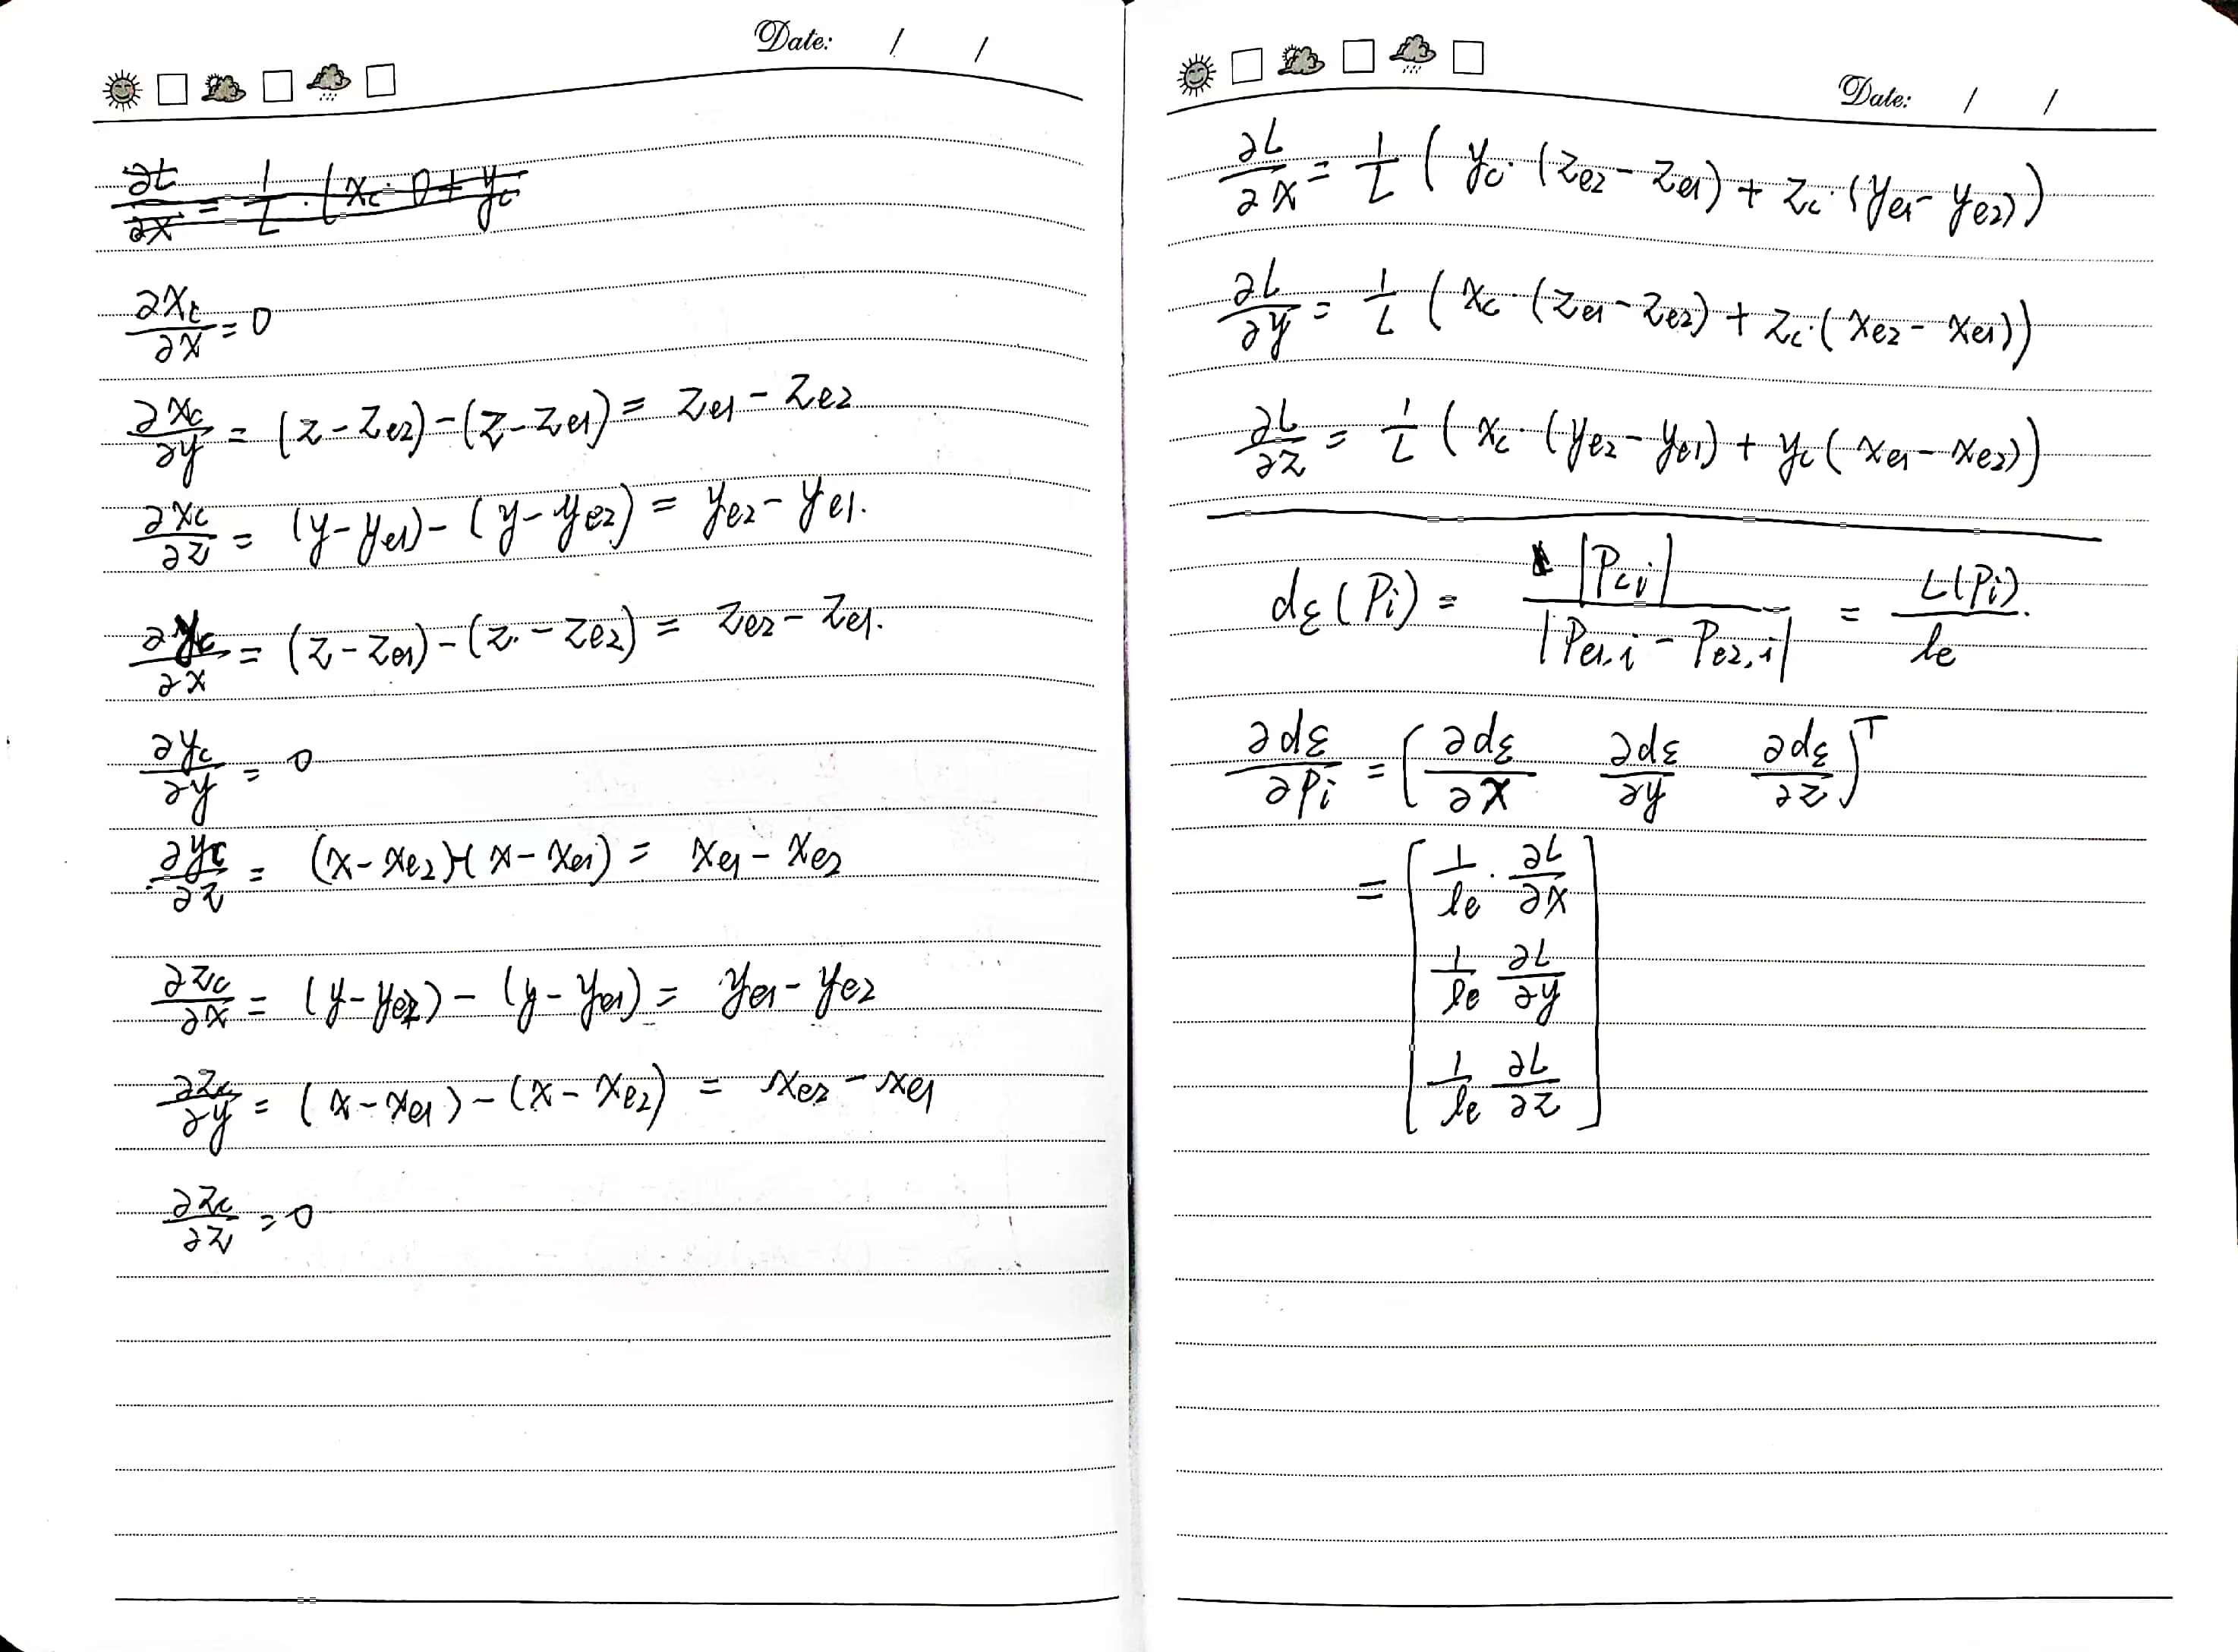 Date: / /
∂L/∂x = 1/L · (x_c · 0 + y_c
∂x_c/∂x = 0
∂x_c/∂y = (z - z_e2) - (z - z_e1) = z_e1 - z_e2
∂x_c/∂z = (y - y_e1) - (y - y_e2) = y_e2 - y_e1.
∂y_c/∂x = (z - z_e1) - (z - z_e2) = z_e2 - z_e1.
∂y_c/∂y = 0
∂y_c/∂z = (x - x_e2) - (x - x_e1) = x_e1 - x_e2
∂z_c/∂x = (y - y_e2) - (y - y_e1) = y_e1 - y_e2
∂z_c/∂y = (x - x_e1) - (x - x_e2) = x_e2 - x_e1
∂z_c/∂z = 0
Date: / /
∂L/∂x = 1/L (y_c · (z_e2 - z_e1) + z_c · (y_e1 - y_e2))
∂L/∂y = 1/L (x_c · (z_e1 - z_e2) + z_c · (x_e2 - x_e1))
∂L/∂z = 1/L (x_c · (y_e2 - y_e1) + y_c (x_e1 - x_e2))
d_ε(P_i) = |P_c,i| / |P_e1,i - P_e2,i| = L(P_i) / l_e.
∂d_ε/∂P_i = [∂d_ε/∂x ∂d_ε/∂y ∂d_ε/∂z]^T
= [1/l_e · ∂L/∂x
1/l_e ∂L/∂y
1/l_e ∂L/∂z]